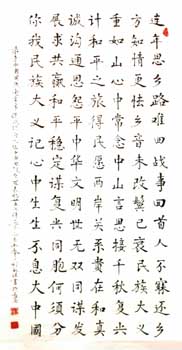 连年思乡路难战事回首人不还乡
方知情更怯乡音未改鬓已衰民族大义
重如山心中常念中山言思接千秋复兴
计和平之旅得民愿两岸关系贵在和真
诚沟通恩怨泯中华文明世无双同谋发
展求共赢和平稳定谋复兴同胞何须分
你我民族大义记心中生生不息大中國